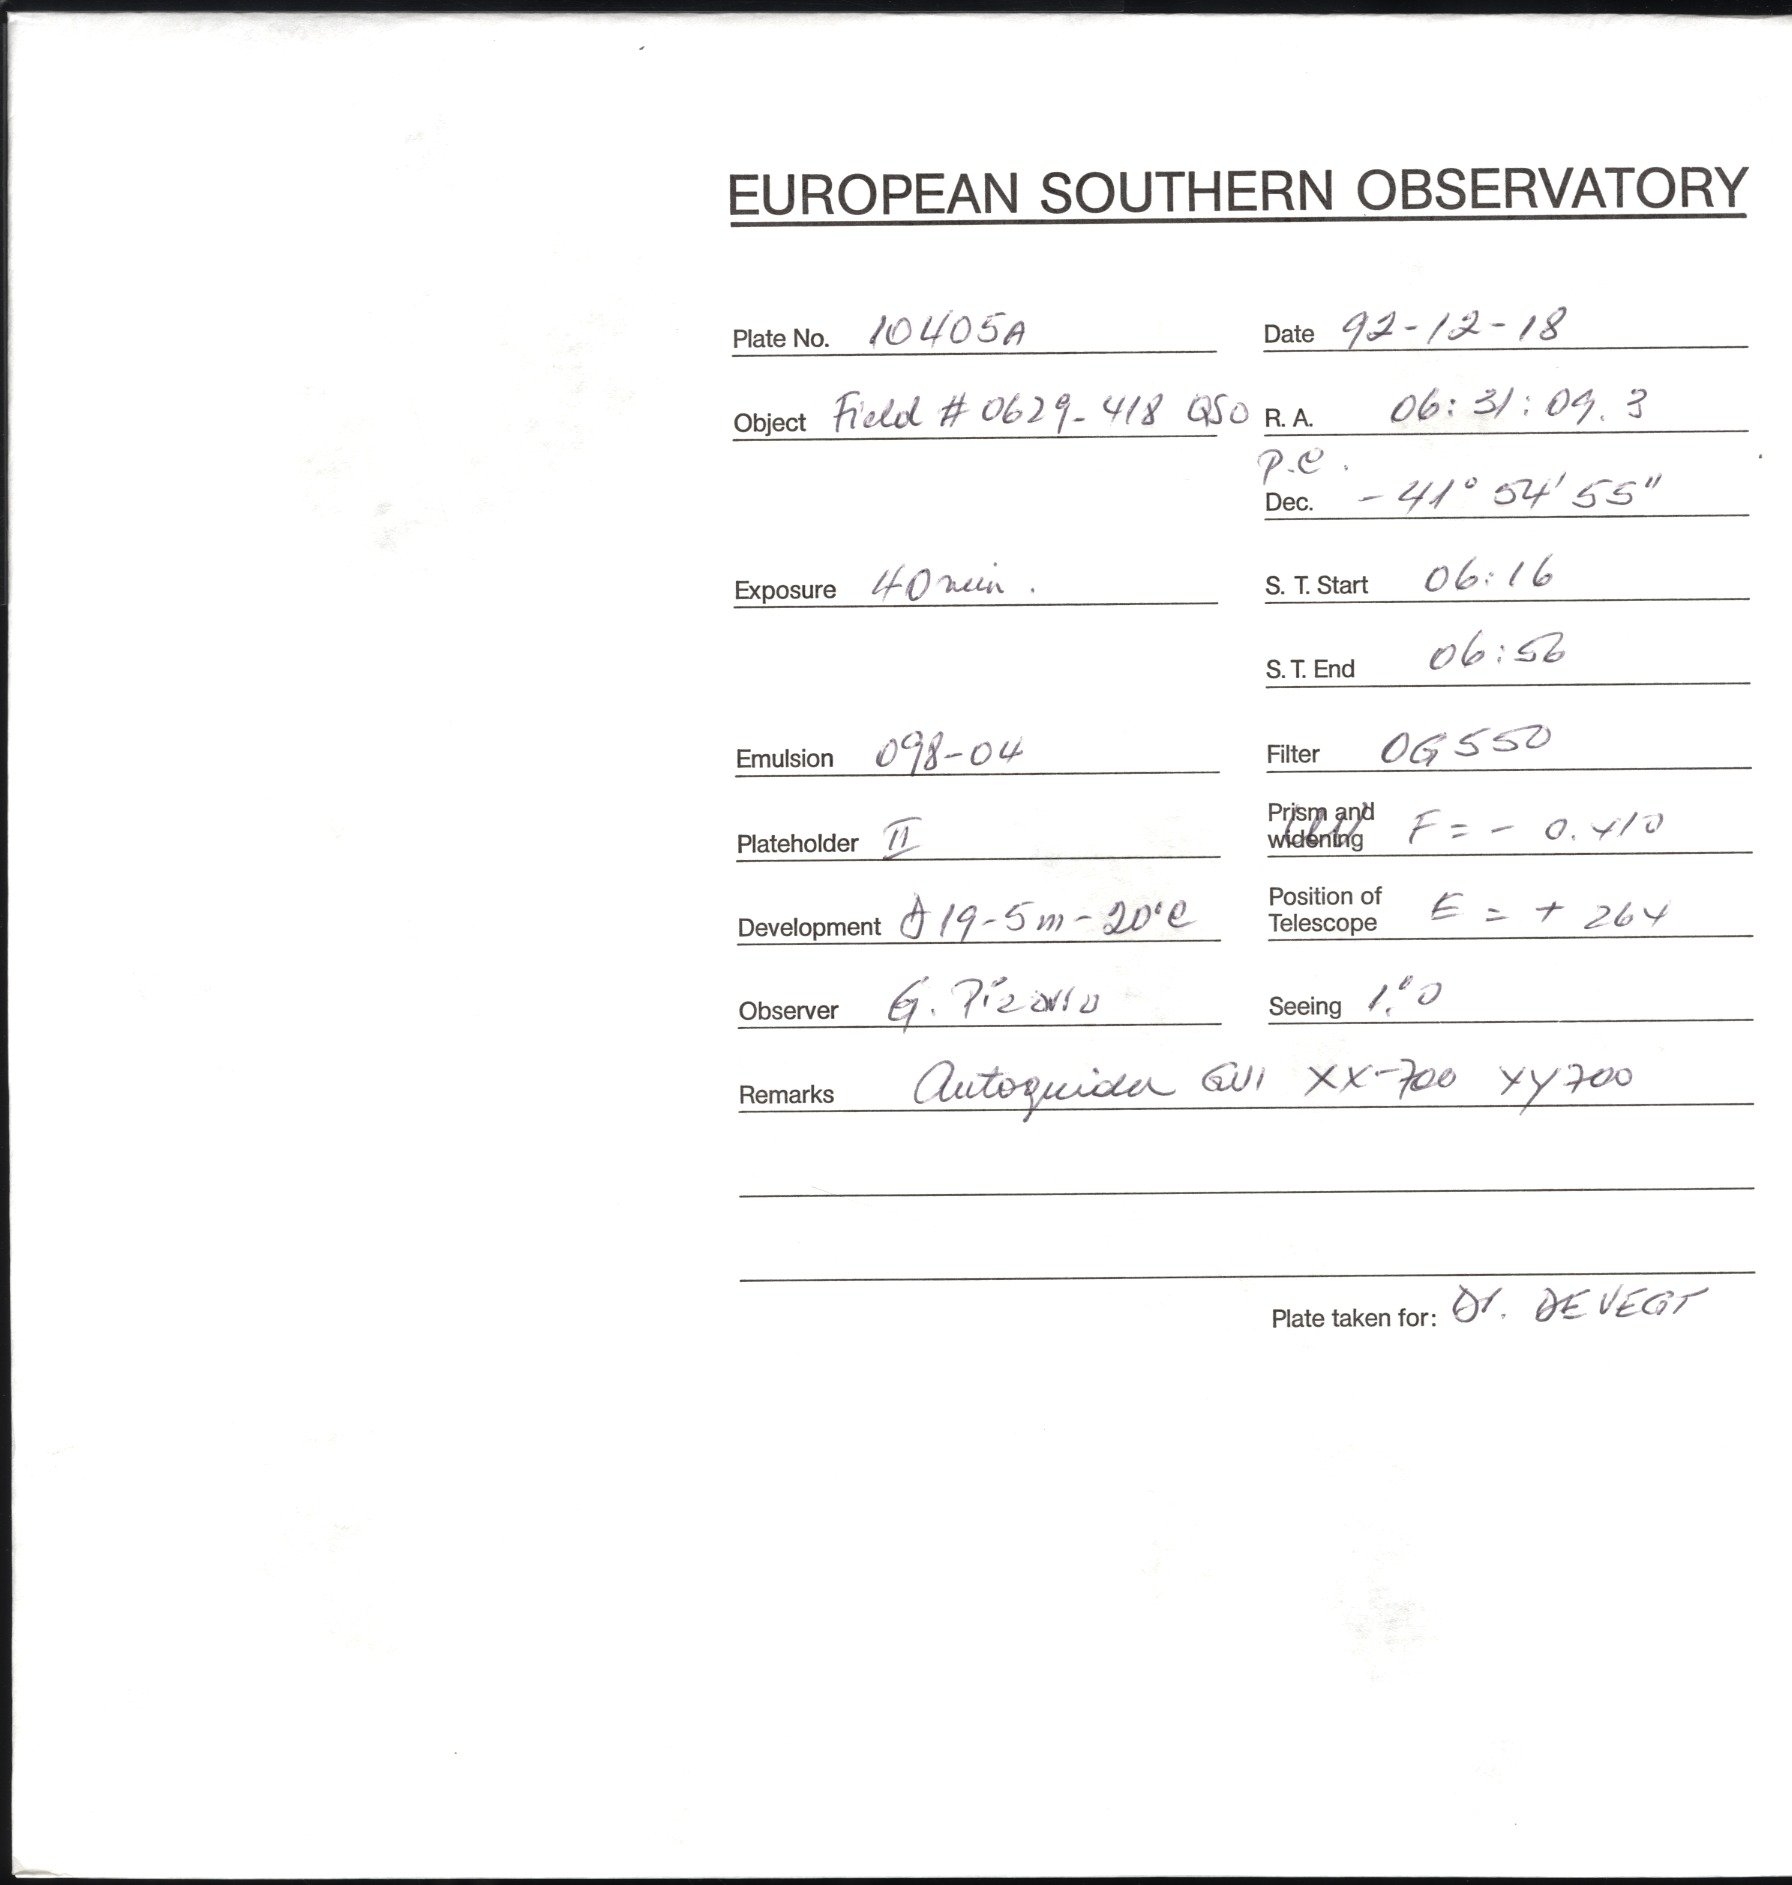 EUROPEAN SOUTHERN OBSERVATORY
Plate No. 10405A Date 92-12-18
Object Field # 0629-418 QSO R. A. 06:31:09.3
P.C.
Dec. -41° 54' 55"
Exposure 40 min. S. T. Start 06:16
S. T. End 06:56
Emulsion 098-04 Filter OG550
Plateholder II Prism and widening F = - 0.410
Development 19-5m-20°C Position of Telescope E = + 264
Observer G. Pizarro Seeing 1."0
Remarks Autoguider XX-700 YY700
Plate taken for: Dr. DE VEGT